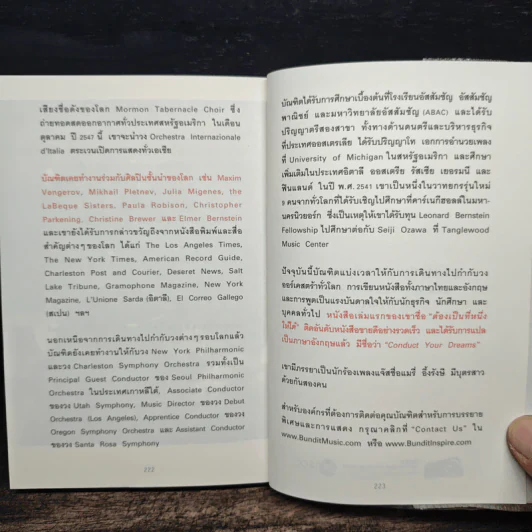 เสียงชื่อดังของโลก Mormon Tabernacle Choir ซึ่ง
ถ่ายทอดสดออกอากาศทั่วประเทศสหรัฐอเมริกา ในเดือน
ตุลาคม ปี 2547 นี้ เขาจะนำวง Orchestra Internazionale
d'Italia ตระเวนเปิดการแสดงทั่วเอเชีย
บัณฑิตเคยทำงานร่วมกับศิลปินชั้นนำของโลก เช่น Maxim
Vengerov, Mikhail Pletnev, Julia Migenes, the
LaBeque Sisters, Paula Robison, Christopher
Parkening, Christine Brewer และ Elmer Bernstein
และเขายังได้รับการกล่าวขวัญถึงจากหนังสือพิมพ์และสื่อ
สำคัญต่างๆของโลก ได้แก่ The Los Angeles Times,
The New York Times, American Record Guide,
Charleston Post and Courier, Deseret News, Salt
Lake Tribune, Gramophone Magazine, New York
Magazine, L'Unione Sarda (อิตาลี), El Correo Gallego
(สเปน) ฯลฯ
นอกเหนือจากการเดินทางไปกำกับวงต่างๆรอบโลกแล้ว
บัณฑิตยังเคยทำงานให้กับวง New York Philharmonic
และวง Charleston Symphony Orchestra รวมทั้งเป็น
Principal Guest Conductor ของ Seoul Philharmonic
Orchestra ในประเทศเกาหลีใต้, Associate Conductor
ของวง Utah Symphony, Music Director ของวง Debut
Orchestra (Los Angeles), Apprentice Conductor ของวง
Oregon Symphony Orchestra และ Assistant Conductor
ของวง Santa Rosa Symphony
222
บัณฑิตได้รับการศึกษาเบื้องต้นที่โรงเรียนอัสสัมชัญ อัสสัมชัญ
พาณิชย์ และมหาวิทยาลัยอัสสัมชัญ (ABAC) และได้รับ
ปริญญาตรีสองสาขา ทั้งทางด้านดนตรีและบริหารธุรกิจ
ที่ประเทศออสเตรเลีย ได้ปริญญาโท เอกการอำนวยเพลง
ที่ University of Michigan ในสหรัฐอเมริกา และศึกษา
เพิ่มเติมในประเทศอิตาลี ออสเตรีย รัสเซีย เยอรมนี และ
ฟินแลนด์ ในปี พ.ศ. 2541 เขาเป็นหนึ่งในวาทยกรรุ่นใหม่
9 คนจากทั่วโลกที่ได้รับเชิญไปศึกษาที่คาร์เนกีฮอลล์ในมหา-
นครนิวยอร์ก ซึ่งเป็นเหตุให้เขาได้รับทุน Leonard Bernstein
Fellowship ไปศึกษาต่อกับ Seiji Ozawa ที่ Tanglewood
Music Center
ปัจจุบันนี้บัณฑิตแบ่งเวลาให้กับการเดินทางไปกำกับวง
ออร์เคสตร้าทั่วโลก การเขียนหนังสือทั้งภาษาไทยและอังกฤษ
และการพูดเป็นแรงบันดาลใจให้กับนักธุรกิจ นักศึกษา และ
บุคคลทั่วไป หนังสือเล่มแรกของเขาชื่อ "ต้องเป็นที่หนึ่ง
ให้ได้" ติดอันดับหนังสือขายดีอย่างรวดเร็ว และได้รับการแปล
เป็นภาษาอังกฤษแล้ว มีชื่อว่า "Conduct Your Dreams"
เขามีภรรยาเป็นนักร้องเพลงแจ๊สชื่อแมรี่ อึ้งรังษี มีบุตรสาว
ด้วยกันสองคน
สำหรับองค์กรที่ต้องการติดต่อคุณบัณฑิตสำหรับการบรรยาย
พิเศษและการแสดง กรุณาคลิกที่ "Contact Us" ใน
www.BunditMusic.com หรือ www.BunditInspire.com
223